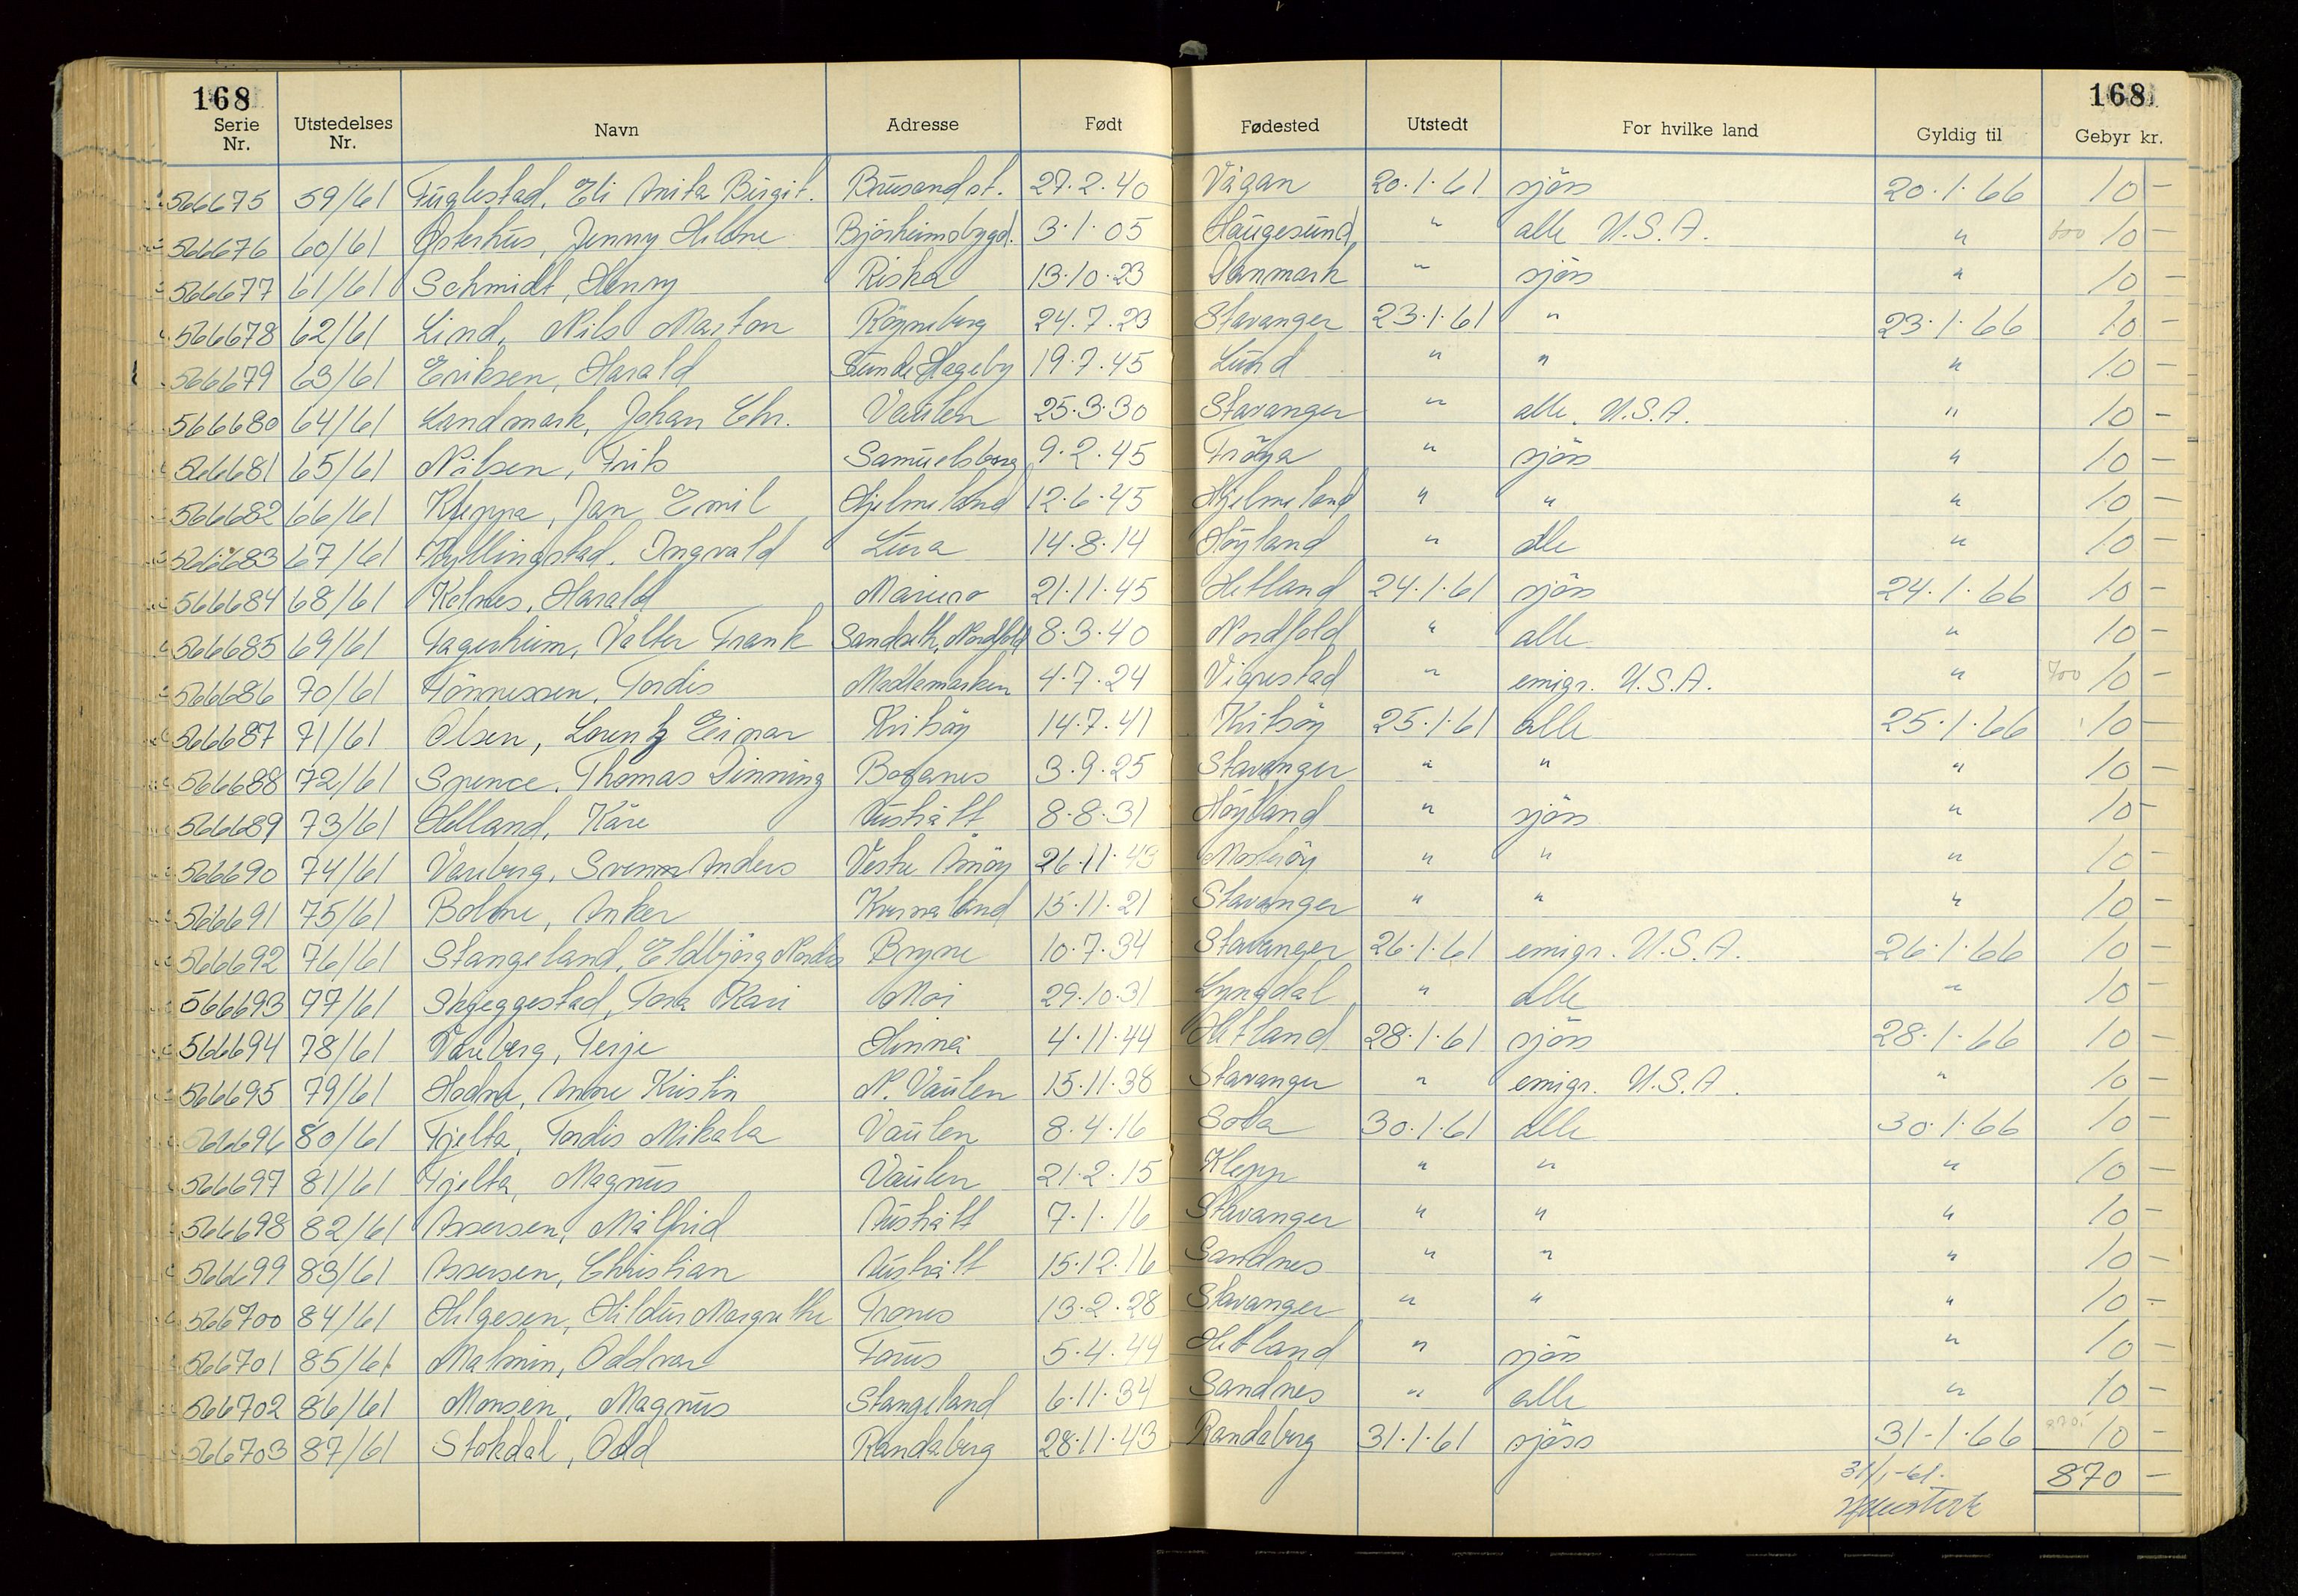 168 168
Serie Nr. Utstedelses Nr. Navn Adresse Født Fødested Utstedt For hvilke land Gyldig til Gebyr kr.
566675 59/61 Fuglestad, Eli Anita Birgit. Brusand st. 27.2.40 Vågan 20.1.61 sjøs 20.1.66 10 –
566676 60/61 Østerhus, Jenny Helene Bjørheimsbygd. 3.1.05 Haugesund " alle U.S.A. " 600 10 –
566677 61/61 Schmidt, Henry Riska 13.10.23 Danmark " sjøs " 10 –
566678 62/61 Lind, Nils Marton Røyneberg 24.7.23 Stavanger 23.1.61 " 23.1.66 10 –
566679 63/61 Eriksen, Harald Sunde Hageby 19.7.45 Lund " " " 10 –
566680 64/61 Landmark, Johan Chr. Vaulen 25.3.30 Stavanger " alle. U.S.A. " 10 –
566681 65/61 Nilsen, Frits Samuelsborg 9.2.45 Frøya " sjøs " 10 –
566682 66/61 Kleppa, Jan Emil Hjelmeland 12.6.45 Hjelmeland " " " 10 –
566683 67/61 Kyllingstad, Ingvald Lura 14.8.14 Høyland " alle " 10 –
566684 68/61 Kolnes, Harald Mariero 21.11.45 Hetland 24.1.61 sjøs 24.1.66 10 –
566685 69/61 Fagerheim, Valter Frank Sandseth, Nordfold 8.3.40 Nordfold " alle " 10 –
566686 70/61 Tönnessen, Tordis Madlamarken 4.7.24 Vigrestad " emigr. U.S.A. " 700 10 –
566687 71/61 Olsen, Lorentz Einar Kvitsøy 14.7.41 Kvitsøy 25.1.61 alle 25.1.66 10 –
566688 72/61 Spence, Thomas Dinning Boganes 3.9.25 Stavanger " " " 10 –
566689 73/61 Helland, Kåre Aushått 8.8.31 Høyland " sjøs " 10 –
566690 74/61 Vareberg, Svenn Anders Vestre Åmøy 26.11.43 Mosterøy " " " 10 –
566691 75/61 Bolme, Anker Kvernaland 15.11.21 Stavanger " " " 10 –
566692 76/61 Stangeland, Eldbjørg Nordis Bryne 10.7.34 Stavanger 26.1.61 emigr. U.S.A. 26.1.66 10 –
566693 77/61 Skjeggestad, Tora Kari Moi 29.10.31 Lyngdal " alle " 10 –
566694 78/61 Vareberg, Terje Hinna 4.11.44 Hetland 28.1.61 sjøs 28.1.66 10 –
566695 79/61 Hodne, Anne Kristin N. Vaulen 15.11.38 Stavanger " emigr. U.S.A. " 10 –
566696 80/61 Tjelta, Tordis Mikala Vaulen 8.4.16 Sola 30.1.61 alle 30.1.66 10 –
566697 81/61 Tjelta, Magnus Vaulen 21.2.15 Klepp " " " 10 –
566698 82/61 Assersen, Målfrid Aushått 7.1.16 Stavanger " " " 10 –
566699 83/61 Assersen, Christian Aushått 15.12.16 Sandnes " " " 10 –
566700 84/61 Helgesen, Hildur Margrethe Trones 13.2.28 Stavanger " " " 10 –
566701 85/61 Malmin, Oddvar Forus 5.4.44 Hetland " sjøs " 10 –
566702 86/61 Monsen, Magnus Stangeland 6.11.34 Sandnes " alle " 10 –
566703 87/61 Stokdal, Odd Randaberg 28.11.43 Randaberg 31.1.61 sjøss 31-1.66 10 –
31/1-61. 870 –